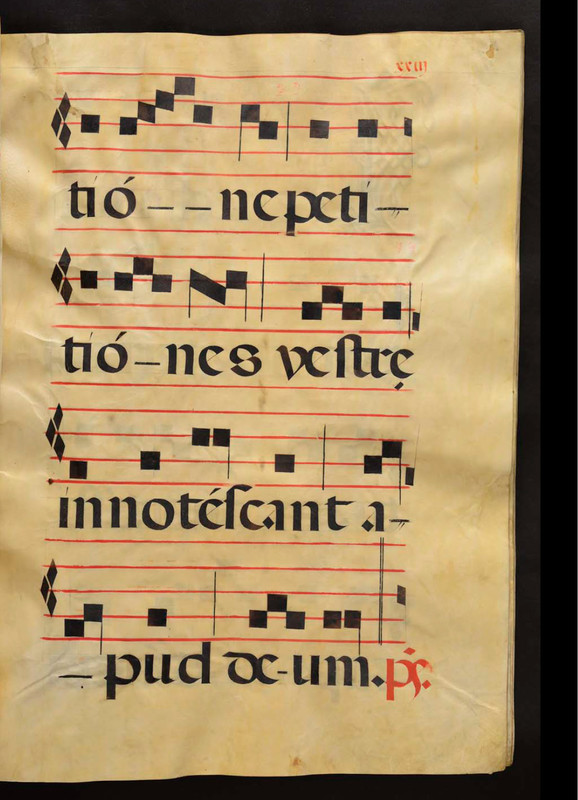 xxiij
tió - - ne peti -
tió - nes vestrę
innotéscant a -
- pud de - um. ps.